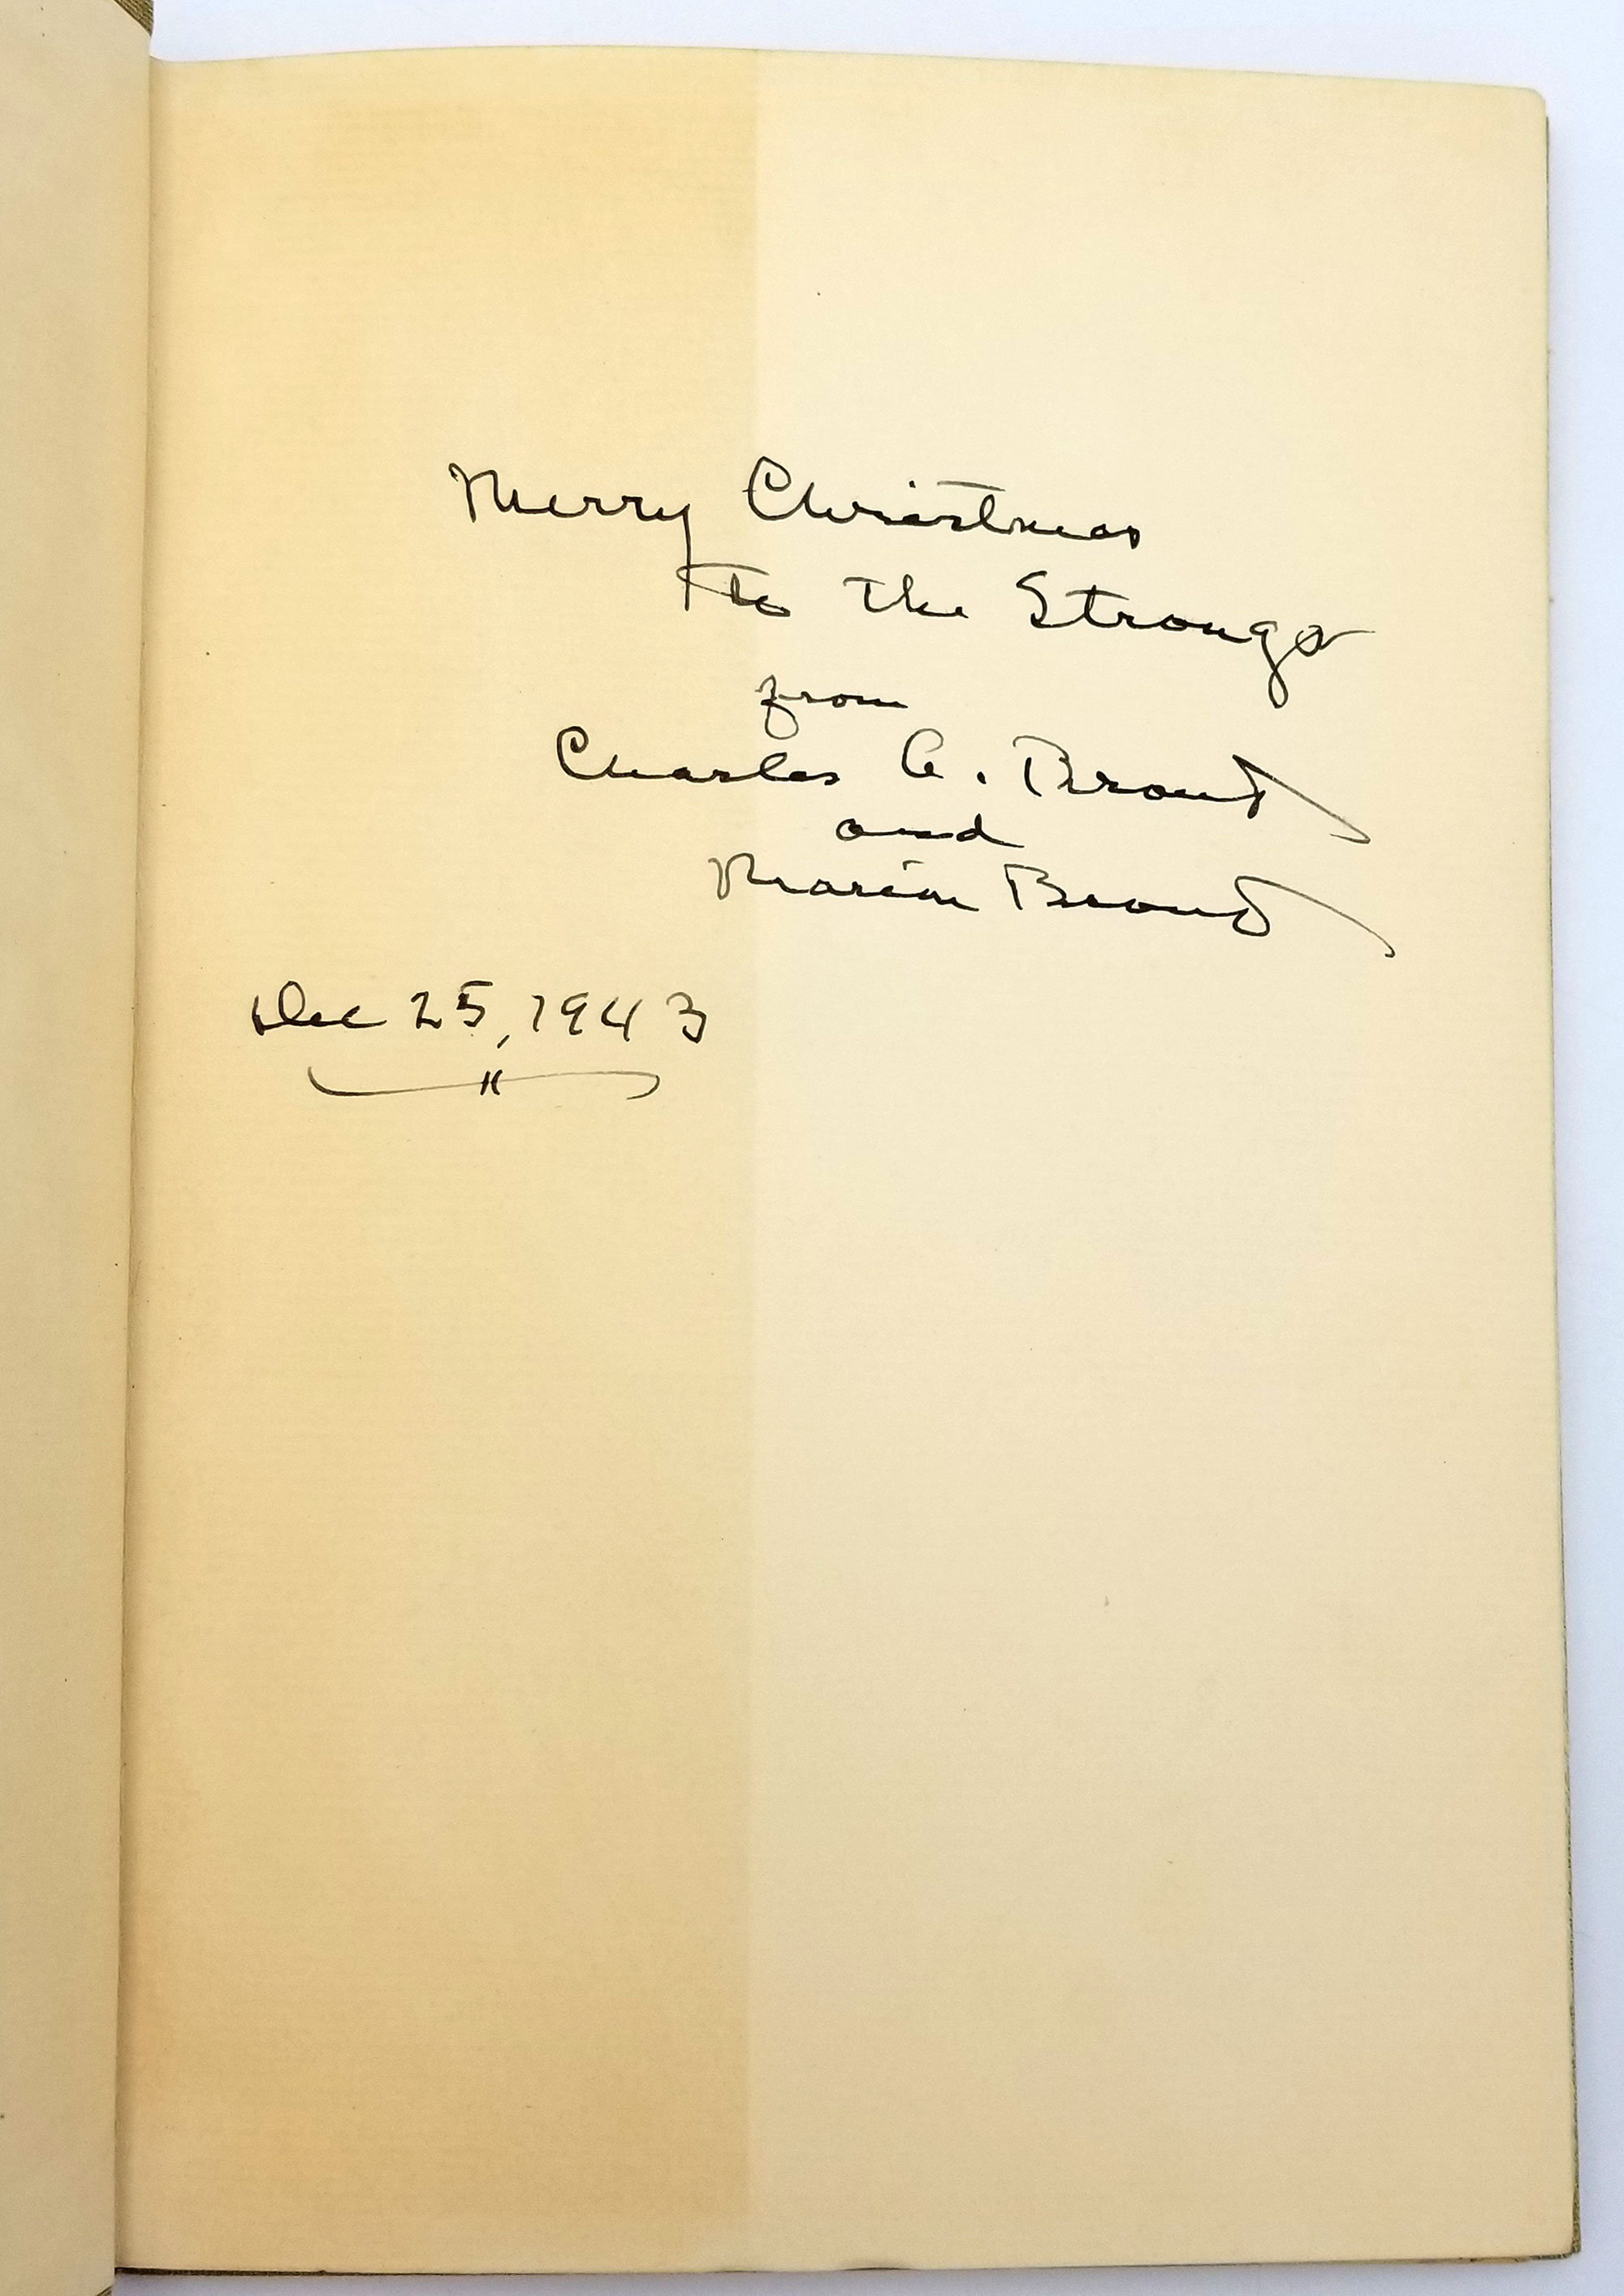 Merry Christmas
to the Strongs
from
Charles A. Brand
and
Marion Brand
Dec 25, 1943